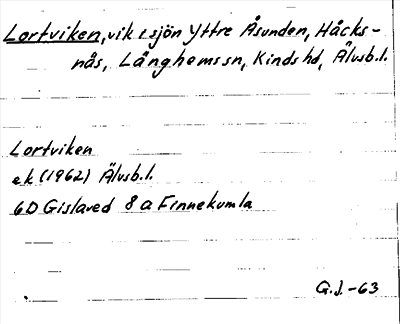 Lortviken, vik i sjön Yttre Åsunden, Håcks-
nås, Långhems sn, Kinds hd, Älvsb.l.
Lortviken
ek (1962) Älvsb.l.
6D Gislaved 8a Finnekumla
G.J.-63